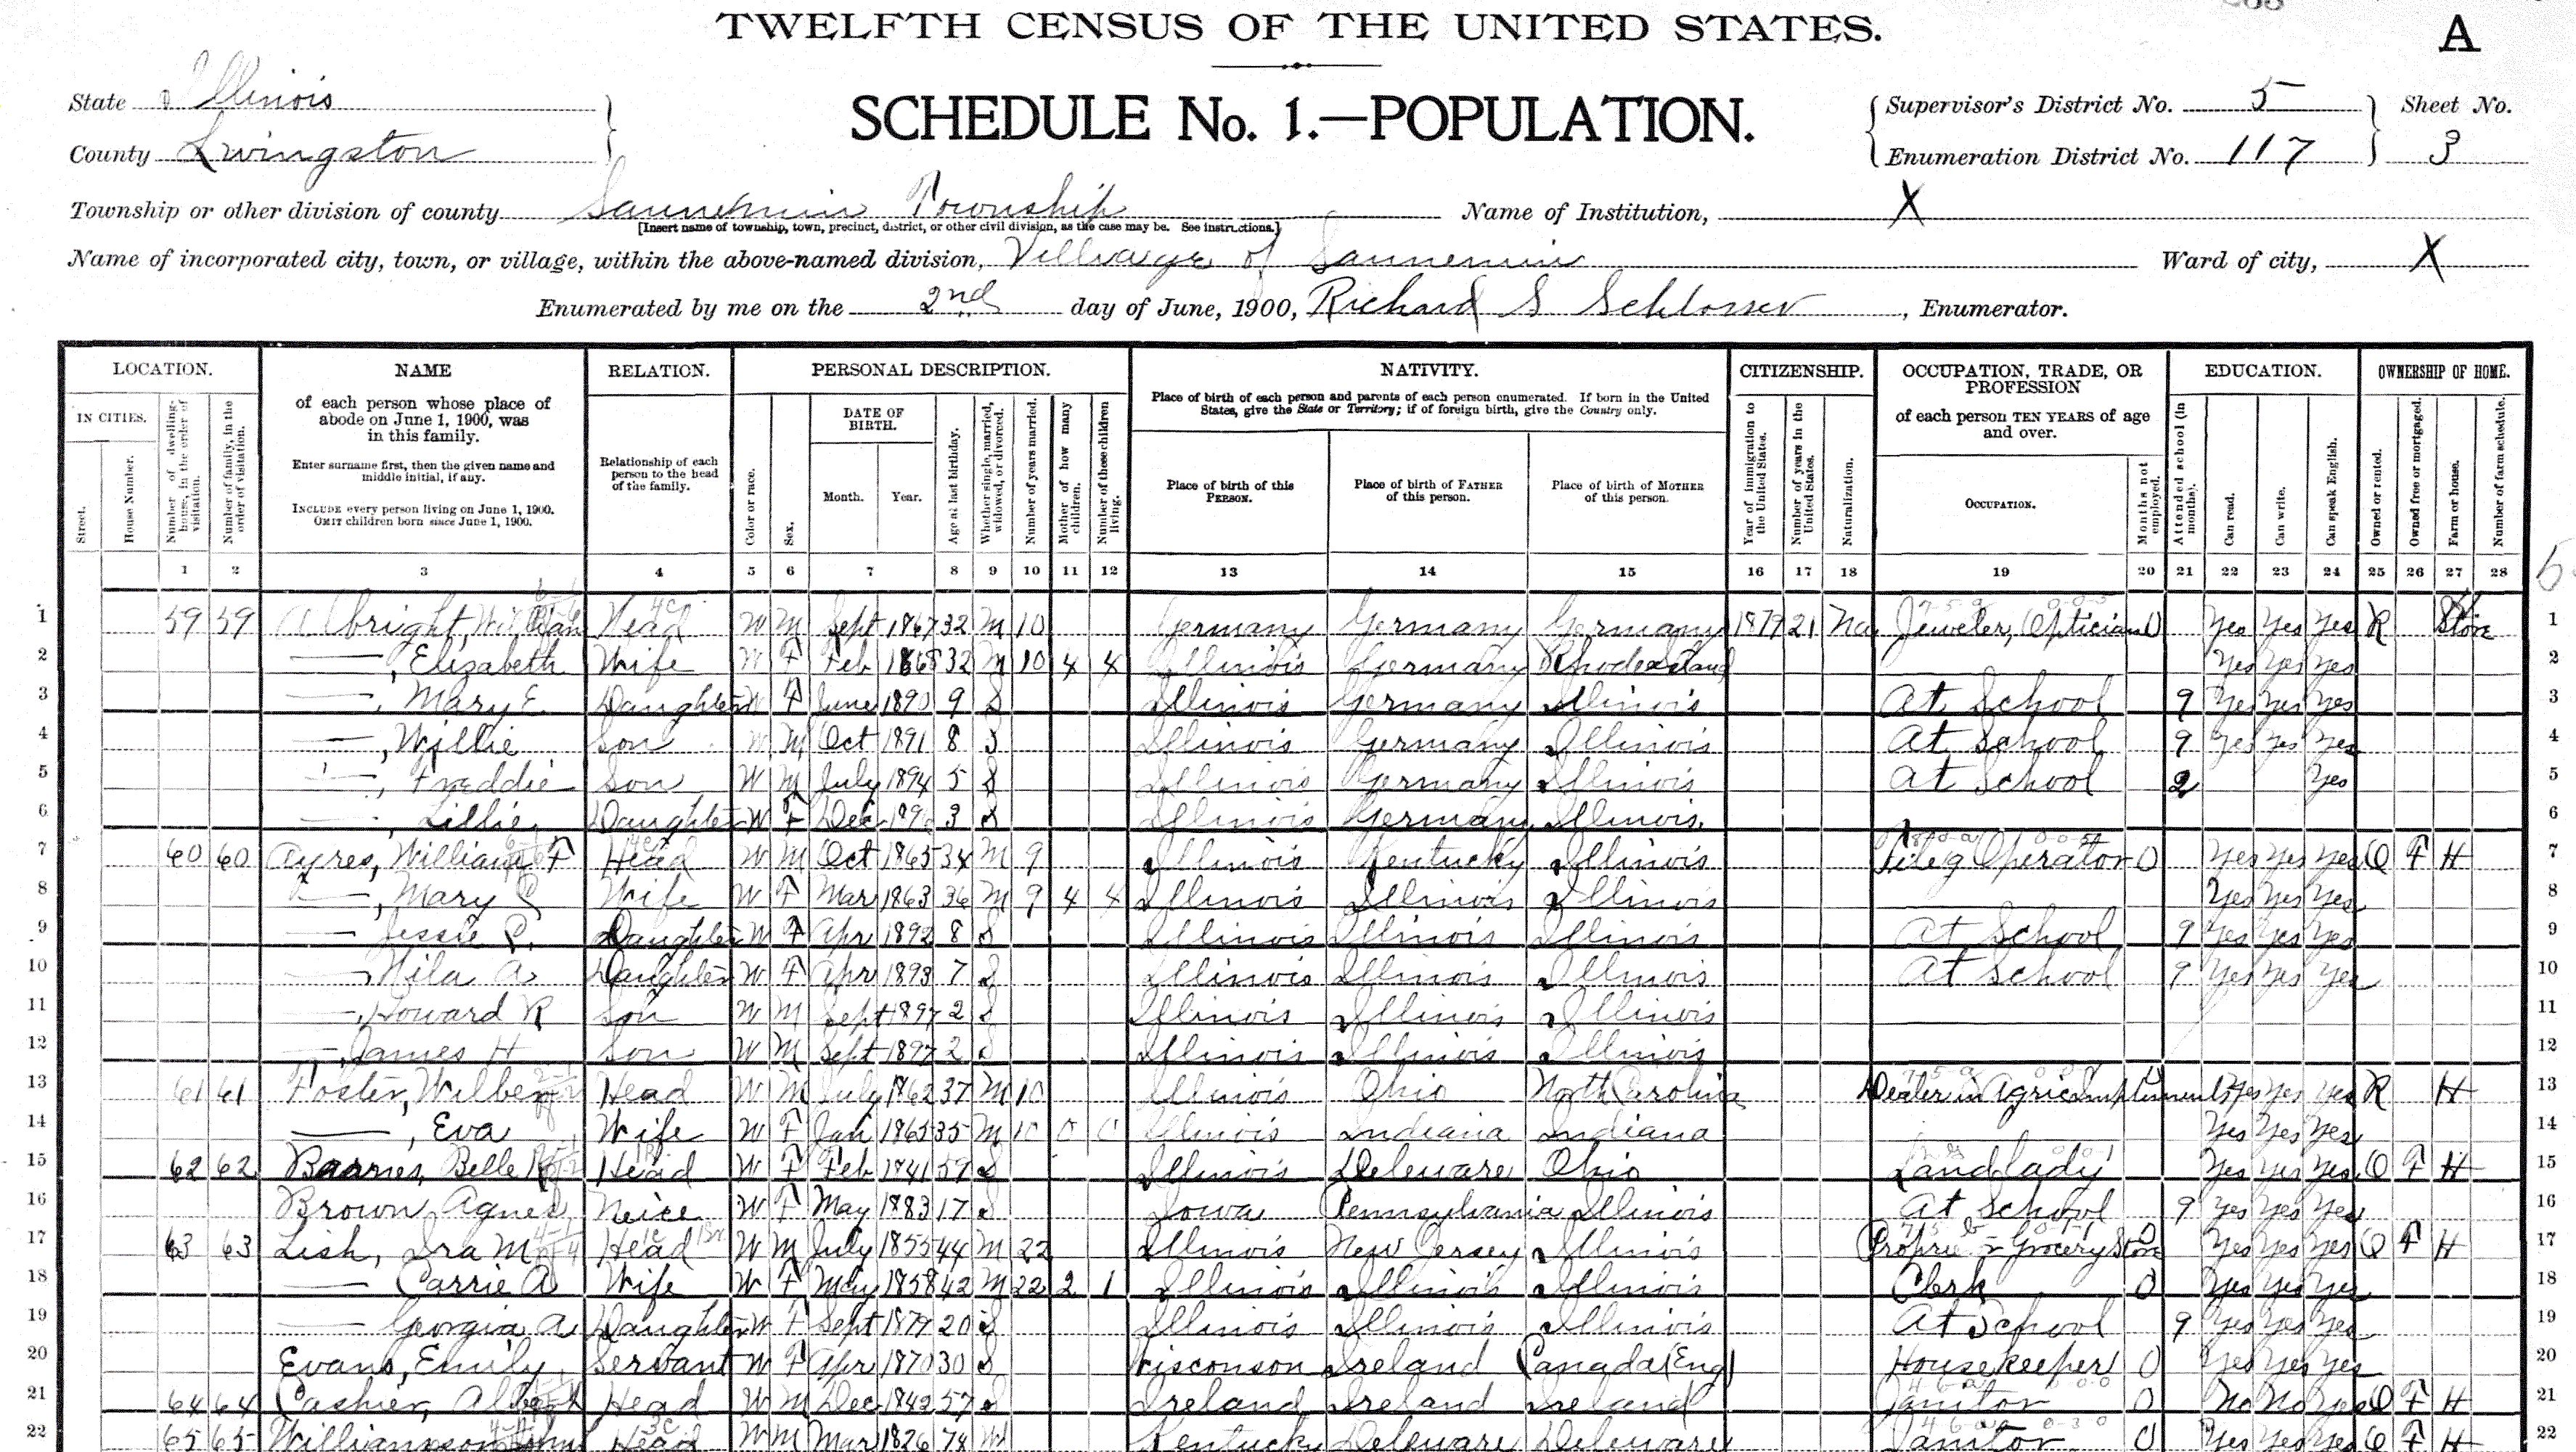 TWELFTH CENSUS OF THE UNITED STATES.
A
State Illinois
County Livingston
SCHEDULE No. 1.—POPULATION.
Supervisor's District No. 5
Enumeration District No. 117
Sheet No.
3
Township or other division of county Saunemin Township
[Insert name of township, town, precinct, district, or other civil division, as the case may be. See instructions.]
Name of Institution, X
Name of incorporated city, town, or village, within the above-named division, Village of Saunemin
Ward of city, X
Enumerated by me on the 2nd day of June, 1900, Richard S Schlosser, Enumerator.
LOCATION.
IN CITIES.
Street.
House Number.
Number of dwelling-house, in the order of visitation.
Number of family, in the order of visitation.
NAME
of each person whose place of abode on June 1, 1900, was in this family.
Enter surname first, then the given name and middle initial, if any.
INCLUDE every person living on June 1, 1900.
OMIT children born since June 1, 1900.
RELATION.
Relationship of each person to the head of the family.
PERSONAL DESCRIPTION.
Color or race.
Sex.
DATE OF BIRTH.
Month.
Year.
Age at last birthday.
Whether single, married, widowed, or divorced.
Number of years married.
Mother of how many children.
Number of these children living.
NATIVITY.
Place of birth of each person and parents of each person enumerated. If born in the United States, give the State or Territory; if of foreign birth, give the Country only.
Place of birth of this PERSON.
Place of birth of FATHER of this person.
Place of birth of MOTHER of this person.
CITIZENSHIP.
Year of immigration to the United States.
Number of years in the United States.
Naturalization.
OCCUPATION, TRADE, OR PROFESSION
of each person TEN YEARS of age and over.
OCCUPATION.
Months not employed.
EDUCATION.
Attended school (in months).
Can read.
Can write.
Can speak English.
OWNERSHIP OF HOME.
Owned or rented.
Owned free or mortgaged.
Farm or house.
Number of farm schedule.
1 2 3 4 5 6 7 8 9 10 11 12 13 14 15 16 17 18 19 20 21 22 23 24 25 26 27 28
1 59 59 Albright, William Head W M Sept 1867 32 M 10 Germany Germany Germany 1879 21 Na Jeweler, Optician 0 Yes Yes Yes R Store 1
2 —, Elizabeth Wife W F Feb 1868 32 M 10 4 4 Illinois Germany Rhode Island Yes Yes Yes 2
3 —, Mary E. Daughter W F June 1890 9 S Illinois Germany Illinois At School 9 Yes Yes Yes 3
4 —, Willie Son W M Oct 1891 8 S Illinois Germany Illinois At School 9 Yes Yes Yes 4
5 —, Freddie Son W M July 1894 5 S Illinois Germany Illinois At School 2 Yes 5
6 —, Lillie Daughter W F Dec 3 S Illinois Germany Illinois 6
7 60 60 Ayres, William F Head W M Oct 1865 34 M 9 Illinois Kentucky Illinois Teleg Operator 0 Yes Yes Yes O F H 7
8 —, Mary Wife W F Mar 1863 36 M 9 4 4 Illinois Illinois Illinois Yes Yes Yes 8
9 — Jessie Daughter W F Apr 1892 8 S Illinois Illinois Illinois At School 9 Yes Yes Yes 9
10 — A Daughter W F Apr 1893 7 S Illinois Illinois Illinois At School 9 Yes Yes Yes 10
11 —, Howard R Son W M Sept 1897 2 S Illinois Illinois Illinois 11
12 —, James H Son W M Sept 1897 2 S Illinois Illinois Illinois 12
13 61 61 Foster, Wilber Head W M July 1862 37 M 10 Illinois Ohio North Carolina Dealer in Agric implements Yes Yes Yes R H 13
14 —, Eva Wife W F Jan 1865 35 M 10 0 0 Illinois Indiana Indiana Yes Yes Yes 14
15 62 62 Barnes, Belle Head W F Feb 1841 59 S Illinois Deleware Ohio Landlady Yes Yes Yes O F H 15
16 Brown Agnes Neice W F May 1883 17 S Iowa Pennsylvania Illinois At School 9 Yes Yes Yes 16
17 63 63 Lish, Ira M Head W M July 1855 44 M 22 Illinois New Jersey Illinois Grocery Store Yes Yes Yes O F H 17
18 — Carrie A Wife W F May 1858 42 M 22 2 1 Illinois Illinois Illinois Clerk 0 Yes Yes Yes 18
19 — Georgia A Daughter W F Sept 1879 20 S Illinois Illinois Illinois At School 9 Yes Yes Yes 19
20 Evans, Emily Servant W F Apr 1870 30 S Wisconson Ireland Canada (Eng) Housekeeper 0 Yes Yes Yes 20
21 64 64 Cashier, Albert Head W M Dec 1842 57 S Ireland Ireland Ireland Janitor 0 No No Yes O F H 21
22 65 65 Williamson Head W M Mar 1826 74 Kentucky Deleware Deleware Janitor 0 Yes Yes Yes O F H 22